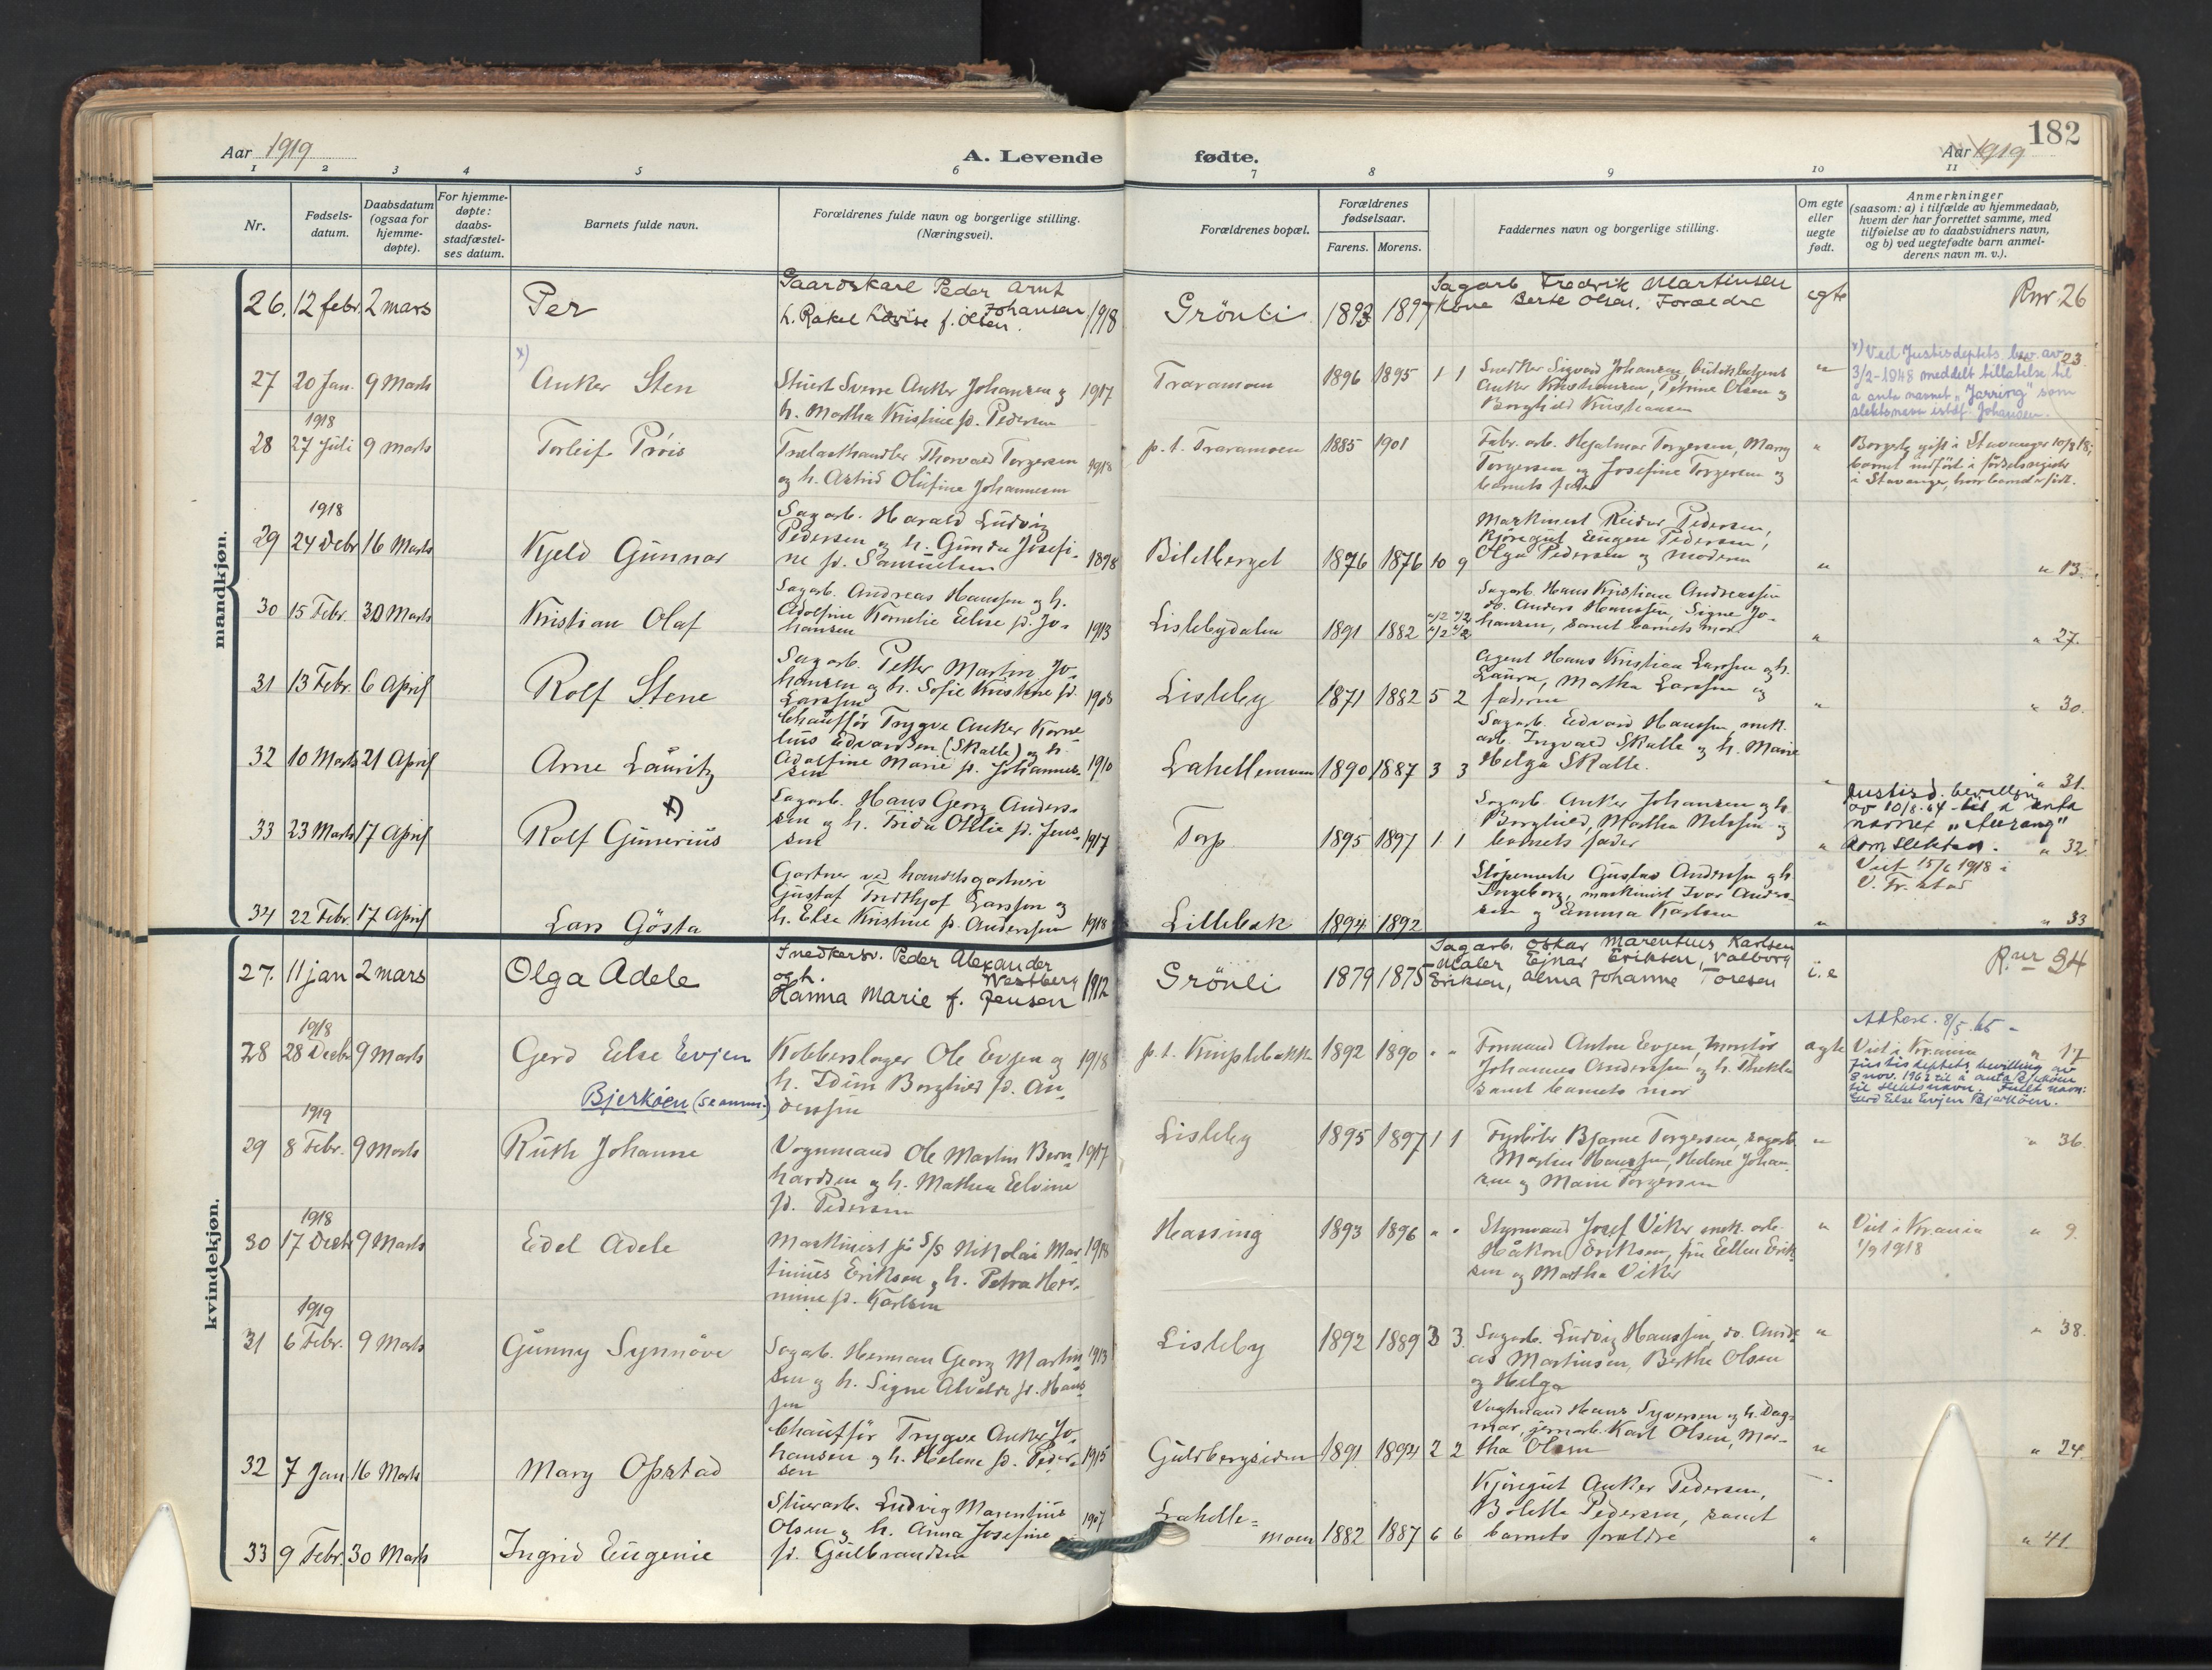 182
Aar 1919
A. Levende
fødte.
Aar 1919
1 2 3 4 5 6 7 8 9 10 11
Nr.
Fødsels-
datum.
Daabsdatum
(ogsaa for
hjemme-
døpte).
For hjemme-
døpte:
daabs-
stadfæstel-
ses datum.
Barnets fulde navn.
Forældrenes fulde navn og borgerlige stilling.
(Næringsvei).
Forældrenes bopæl.
Forældrenes
fødselsaar.
Farens. Morens.
Faddernes navn og borgerlige stilling.
Om egte
eller
uegte
født.
Anmerkninger
(saasom: a) i tilfælde av hjemmedaab,
hvem der har forrettet samme, med
tilføielse av to daabsvidners navn,
og b) ved uegtefødte barn anmel-
derens navn m. v.).
mandkjøn.
26. 12 febr. 2 mars
Per
Gaardskarl Peder Arnt
Johansen
h. Rakel Lovise f. Olsen. 1918
Grönli 1893 1897
Sagarb Fredrik Martinsen
Kone Berte Olsen. Forældre
egte
Rnr 26
27 20 Jan. 9 Marts
x)
Anker Sten
Stuert Sverre Anker Johansen og
h. Martha Kristine fd. Pedersen 1917
Traramoen 1896 1895 1 1
Snedker Sigvard Johansen, butikbetjent
Anker Kristiansen, Petrine Olsen og
Borghild Kristiansen
"
" 23.
x) Ved Justisdeptets bev. av
3/2-1948 meddelt tillatelse til
å anta navnet "Jarring" som
slektsnavn istdf. Johansen.
1918
28 27 Juli 9 Marts
Torleif Pröis
Trælasthandler Thorvald Torgersen
og h. Astrid Olufine Johannesen 1918
p. t. Traramoen 1885 1901
Fabr. arb. Hjalmar Torgersen, Mary
Torgersen og Josefine Torgersen og
barnets fader
"
Borgerlig gift i Stavanger 10/8 18;
barnet indført i fødselsregister
i Stavanger, hvor barnet er født.
1918
29 24 Debr 16 Marts
Kjeld Gunnar
Sagarb. Harald Ludvig
Pedersen og h. Gunda Josefi-
ne fd. Samuelsen 1898
Bildberget 1876 1876 10 9
Maskinist Reidar Pedersen,
Kjöregut Eugen Pedersen,
Olga Pedersen og moderen
"
" 13.
30 15 Febr. 30 Marts
Kristian Olaf
Sagarb. Andreas Hanssen og h.
Adolfine Kornelie Elise fd. Jo-
hansen 1913
Lislebydalen 1891 1882
Sagarb. Hans Kristian Andreassen
do. Anders Hanssen, Signe Jo-
hansen, samt barnets mor.
"
" 27.
31 13 Febr. 6 April
Rolf Stene
Sagarb. Petter Martin Jo-
hansen og h. Sofie Kristine fd.
Larssen 1908
Lisleby 1871 1882 5 2
Agent Hans Kristian Larssen og h.
Laura, Martha Larssen og
faderen
"
" 30.
32 10 Marts 21 April
Arne Lauritz
Chauffør Trygve Anker Korne-
lius Edvardsen (Skalle) og h.
Adolfine Marie fd. Johannes-
sen 1910
Lahellemoen 1890 1887 3 3
Sagarb. Edvard Hanssen, mek.
arb. Ingvald Skalle og h. Marie
Helga Skalle.
"
" 31.
x)
33 23 Marts 17 April
Rolf Gunerius
Sagarb. Hans Georg Anders-
sen og h. Frida Otilie fd. Jens-
sen 1917
Torp 1895 1897 1 1
Sagarb. Anker Johansen og h.
Borghild, Martha Nilssen og
barnets fader
"
Justisd. bevillgn
av 10/8.64 til å anta
navnet
som slektsn.
" 32.
34 22 Febr. 17 April
Lars Gösta
Gartner ved handelsgartneri
Gustaf Fridthjof Larsson og
h. Else Kristine fd. Anderssen 1918
Lillebæk 1894 1892
Støpemester Gustav Anderssen og h.
Ingeborg, maskinist Ivar Anders-
sen og Emma Karlsen
"
Viet 15/6 1918 i
V. Fr.stad
" 33
kvindekjøn.
27. 11 jan 2 mars
Olga Adele
Snedkersv. Peder Alexander
og h. Westberg
Hanna Marie f. Jensen 1912
Grönli 1879 1875
Sagarb. Oskar Marentius Karlsen
Maler Ejnar Eriksen, Valborg
Eriksen, Alma Johanne Toresen
i. e
R.nr 34
1918
28 28 Decbr 9 Marts
Gerd Else Evjen
Bjerköen (se anm.)
Kobberslager Ole Evjen og
h. Idun Borghild fd. An-
derssen 1918
p. t. Kniplebakken 1892 1890 " "
Formand Anton Evjen, montör
Johannes Anderssen og h. Thekla
samt barnets mor
egte
Attest. 8/5.65 -
Viet i Kr.ania
" 17
Justisdeptets bevilling av
8 nov. 1963 til å anta Bjerköen
til slektsnavn. Fullt navn:
Gerd Else Evjen Bjerköen.
1919
29 8 Febr. 9 Marts
Ruth Johanne
Vognmand Ole Martin Bern-
hardsen og h. Mathea Elvine
fd. Pedersen 1917
Lisleby 1895 1897 1 1
Fyrböter Bjarne Torgersen, sagarb.
Martin Hanssen, Helene Johan-
sen og Marie Torgersen
"
" 36.
1918
30 17 Decbr 9 Marts
Edel Adele
Maskinist på S/S Nikolai Mar-
tinius Eriksen og h. Petra Her-
mine fd. Karlsen 1918
Hassing 1893 1896 " "
Styrmand Josef Viker mek. arb.
Håkon Eriksen, fru Ellen Erik-
sen og Martha Viker
"
Viet i Kr.ania
1/9 1918
" 9.
1919
31 6 Febr. 9 Marts
Gunny Synnöve
Sagarb. Herman Georg Martin-
sen og h. Signe Alvilde fd. Hans-
sen 1913
Lisleby 1892 1889 3 3.
Sagarb. Ludvig Hanssen, do. Andre-
as Martinsen, Berthe Olsen
og Helga
"
" 38.
32 7 Jan 16 Marts
Mary Opstad
Chauffør Trygve Anker Jo-
hansen og h. Helene fd. Peder-
sen 1915
Guldbergsiden 1891 1894 2 2
Vagtmand Hans Syversen og h. Dag-
mar, jernarb. Karl Olsen, Mar-
tha Olsen
"
" 24.
33 9 Febr. 30 Marts
Ingrid Eugenie
Stuerarb. Ludvig Marentius
Olsen og h. Anna Josefine
fd. Gulbrandsen 1907
Lahelle-
moen 1882 1887 6 6
Kjöregut Anker Pedersen,
Bolette Pedersen, samt
barnets forældre
"
" 41.